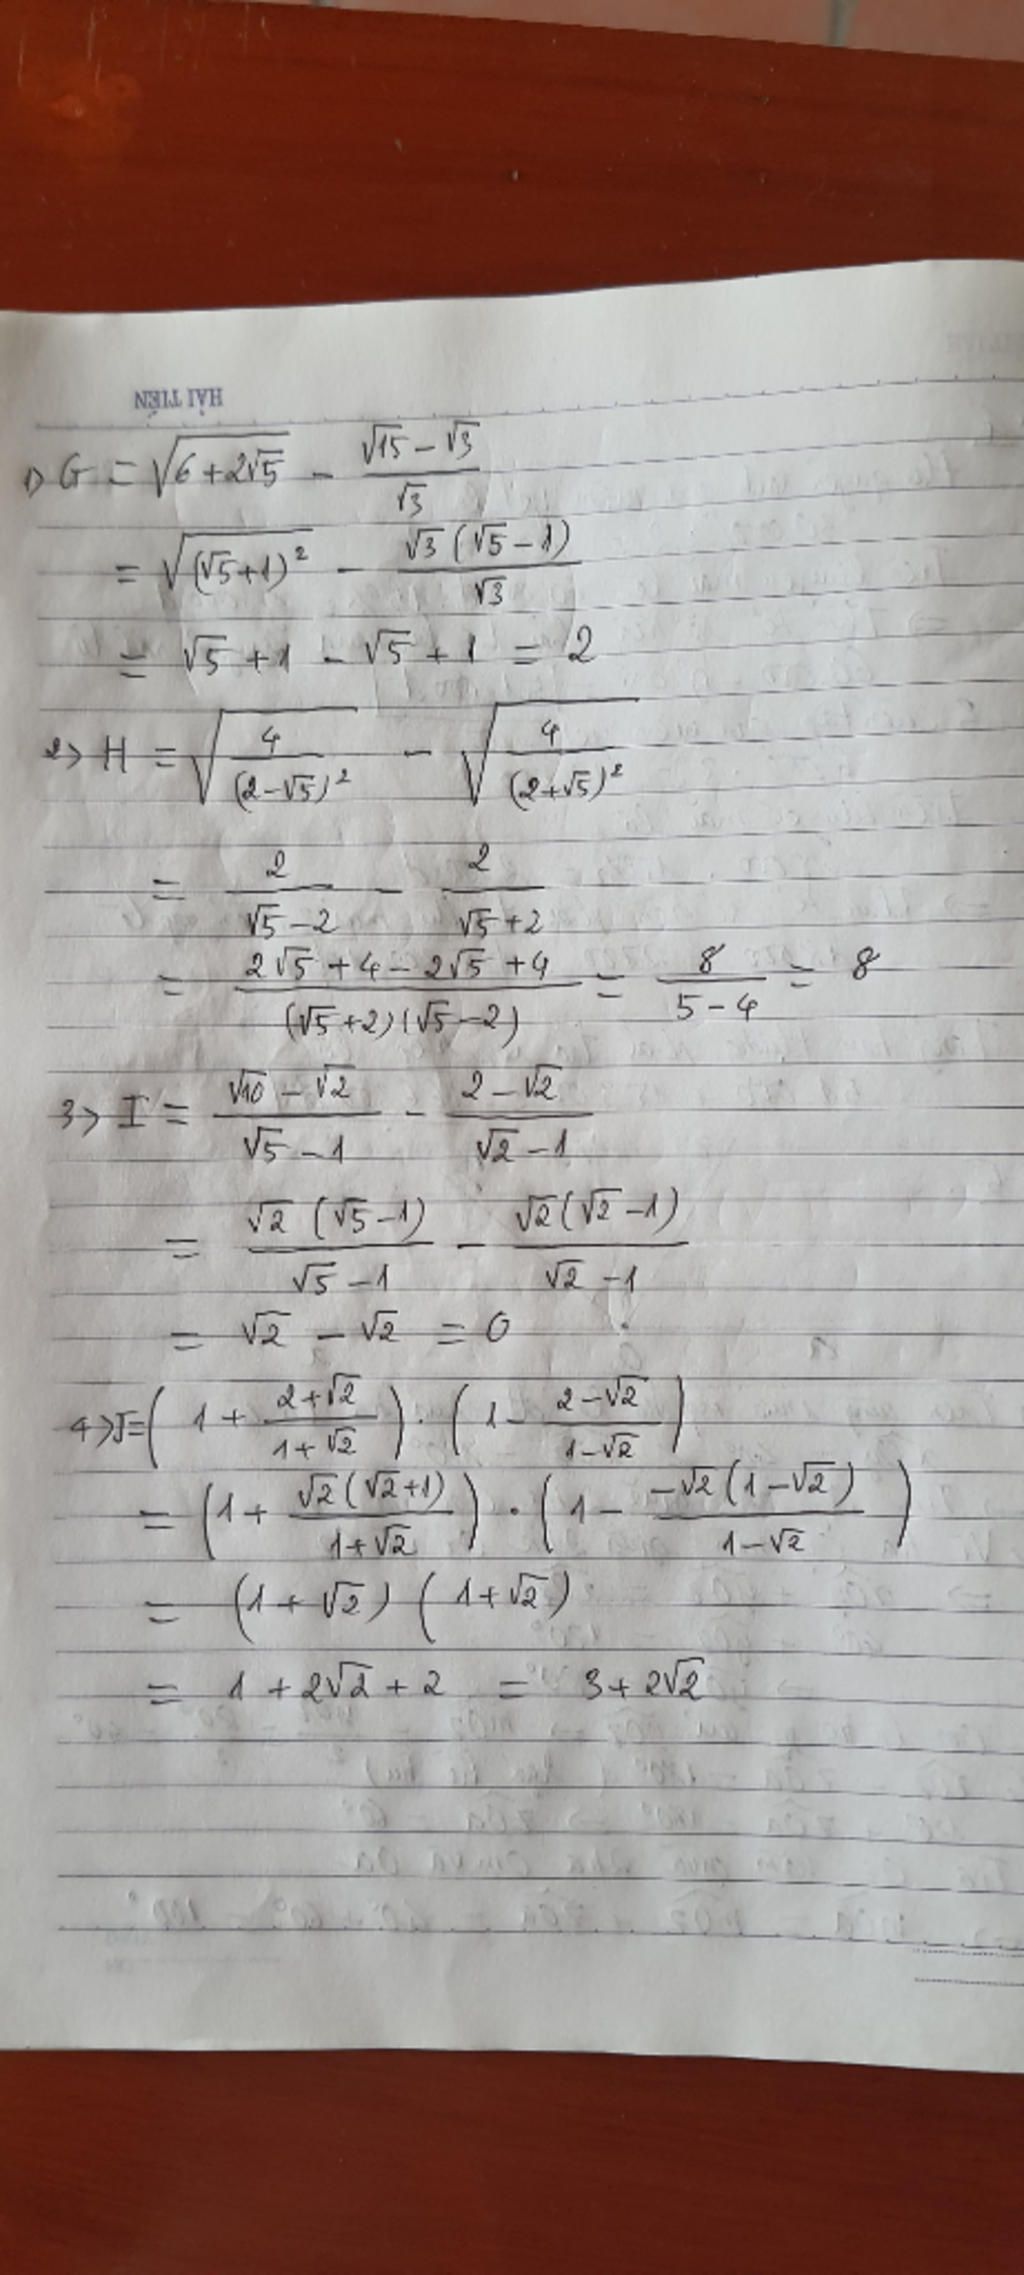 HẢI TIẾN
1> G = √(6+2√5) - (√15 - √3)/√3
= √((√5+1)²) - (√3(√5-1))/√3
= √5 + 1 - √5 + 1 = 2
2> H = √(4/(2-√5)²) - √(4/(2+√5)²)
= 2/(√5-2) - 2/(√5+2)
= (2√5 + 4 - 2√5 + 4)/((√5+2)(√5-2)) = 8/(5-4) = 8
3> I = (√10 - √2)/(√5 - 1) - (2 - √2)/(√2 - 1)
= (√2(√5-1))/(√5-1) - (√2(√2-1))/(√2-1)
= √2 - √2 = 0
4> J = (1 + (2+√2)/(1+√2)) . (1 - (2-√2)/(1-√2))
= (1 + (√2(√2+1))/(1+√2)) . (1 - (-√2(1-√2))/(1-√2))
= (1 + √2) (1 + √2)
= 1 + 2√2 + 2 = 3 + 2√2